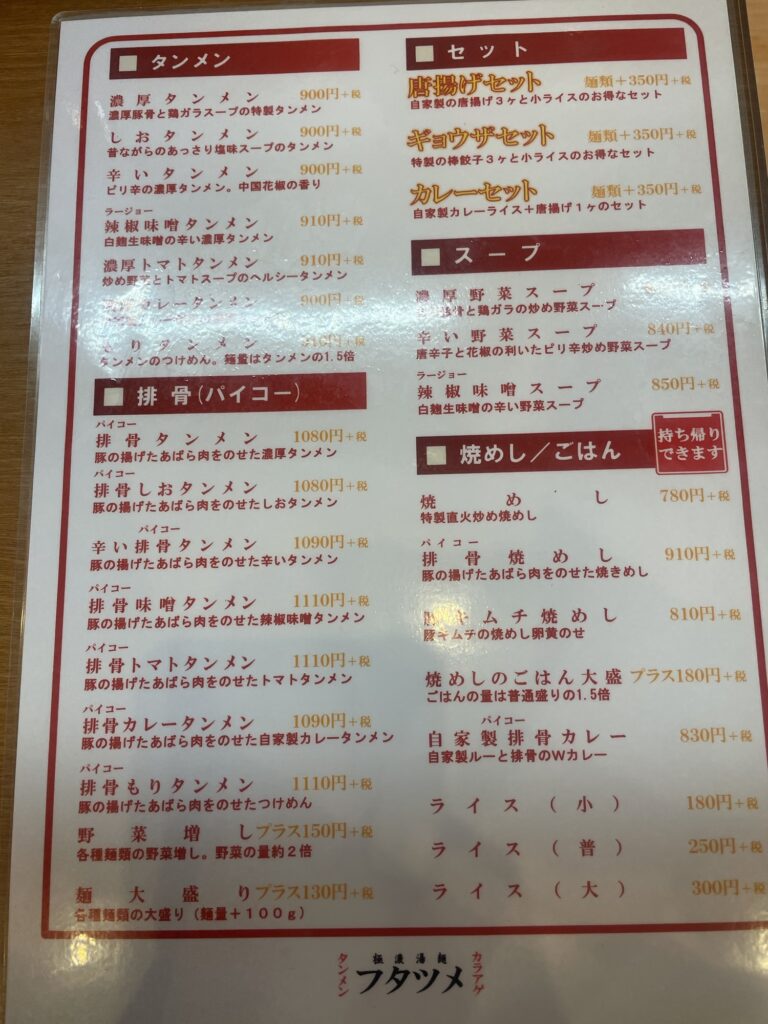 タンメン
濃厚タンメン 900円+税
濃厚豚骨と鶏ガラスープの特製タンメン
しおタンメン 900円+税
昔ながらのあっさり塩味スープのタンメン
辛いタンメン 900円+税
ピリ辛の濃厚タンメン。中国花椒の香り
ラージョー
辣椒味噌タンメン 910円+税
白麹生味噌の辛い濃厚タンメン
濃厚トマトタンメン 910円+税
炒め野菜とトマトスープのヘルシータンメン
カレータンメン 900円+税
もりタンメン 910円+税
タンメンのつけめん。麺量はタンメンの1.5倍
排骨(パイコー)
パイコー
排骨タンメン 1080円+税
豚の揚げたあばら肉をのせた濃厚タンメン
パイコー
排骨しおタンメン 1080円+税
豚の揚げたあばら肉をのせたしおタンメン
パイコー
辛い排骨タンメン 1090円+税
豚の揚げたあばら肉をのせた辛いタンメン
パイコー
排骨味噌タンメン 1110円+税
豚の揚げたあばら肉をのせた辣椒味噌タンメン
パイコー
排骨トマトタンメン 1110円+税
豚の揚げたあばら肉をのせたトマトタンメン
パイコー
排骨カレータンメン 1090円+税
豚の揚げたあばら肉をのせた自家製カレータンメン
パイコー
排骨もりタンメン 1110円+税
豚の揚げたあばら肉をのせたつけめん
野菜増し プラス150円+税
各種麺類の野菜増し。野菜の量約2倍
麺大盛り プラス130円+税
各種麺類の大盛り(麺量+100g)
セット
唐揚げセット 麺類+350円+税
自家製の唐揚げ3ヶと小ライスのお得なセット
ギョウザセット 麺類+350円+税
特製の棒餃子3ヶと小ライスのお得なセット
カレーセット 麺類+350円+税
自家製カレーライス+唐揚げ1ヶのセット
スープ
濃厚野菜スープ
骨と鶏ガラの炒め野菜スープ
辛い野菜スープ 840円+税
唐辛子と花椒の利いたピリ辛炒め野菜スープ
ラージョー
辣椒味噌スープ 850円+税
白麹生味噌の辛い野菜スープ
焼めし/ごはん
持ち帰り
できます
焼めし 780円+税
特製直火炒め焼めし
パイコー
排骨焼めし 910円+税
豚の揚げたあばら肉をのせた焼きめし
豚キムチ焼めし 810円+税
豚キムチの焼めし卵黄のせ
焼めしのごはん大盛 プラス180円+税
ごはんの量は普通盛りの1.5倍
パイコー
自家製排骨カレー 830円+税
自家製ルーと排骨のWカレー
ライス(小) 180円+税
ライス(普) 250円+税
ライス(大) 300円+税
タンメン
極濃湯麺
フタツメ
カラアゲ